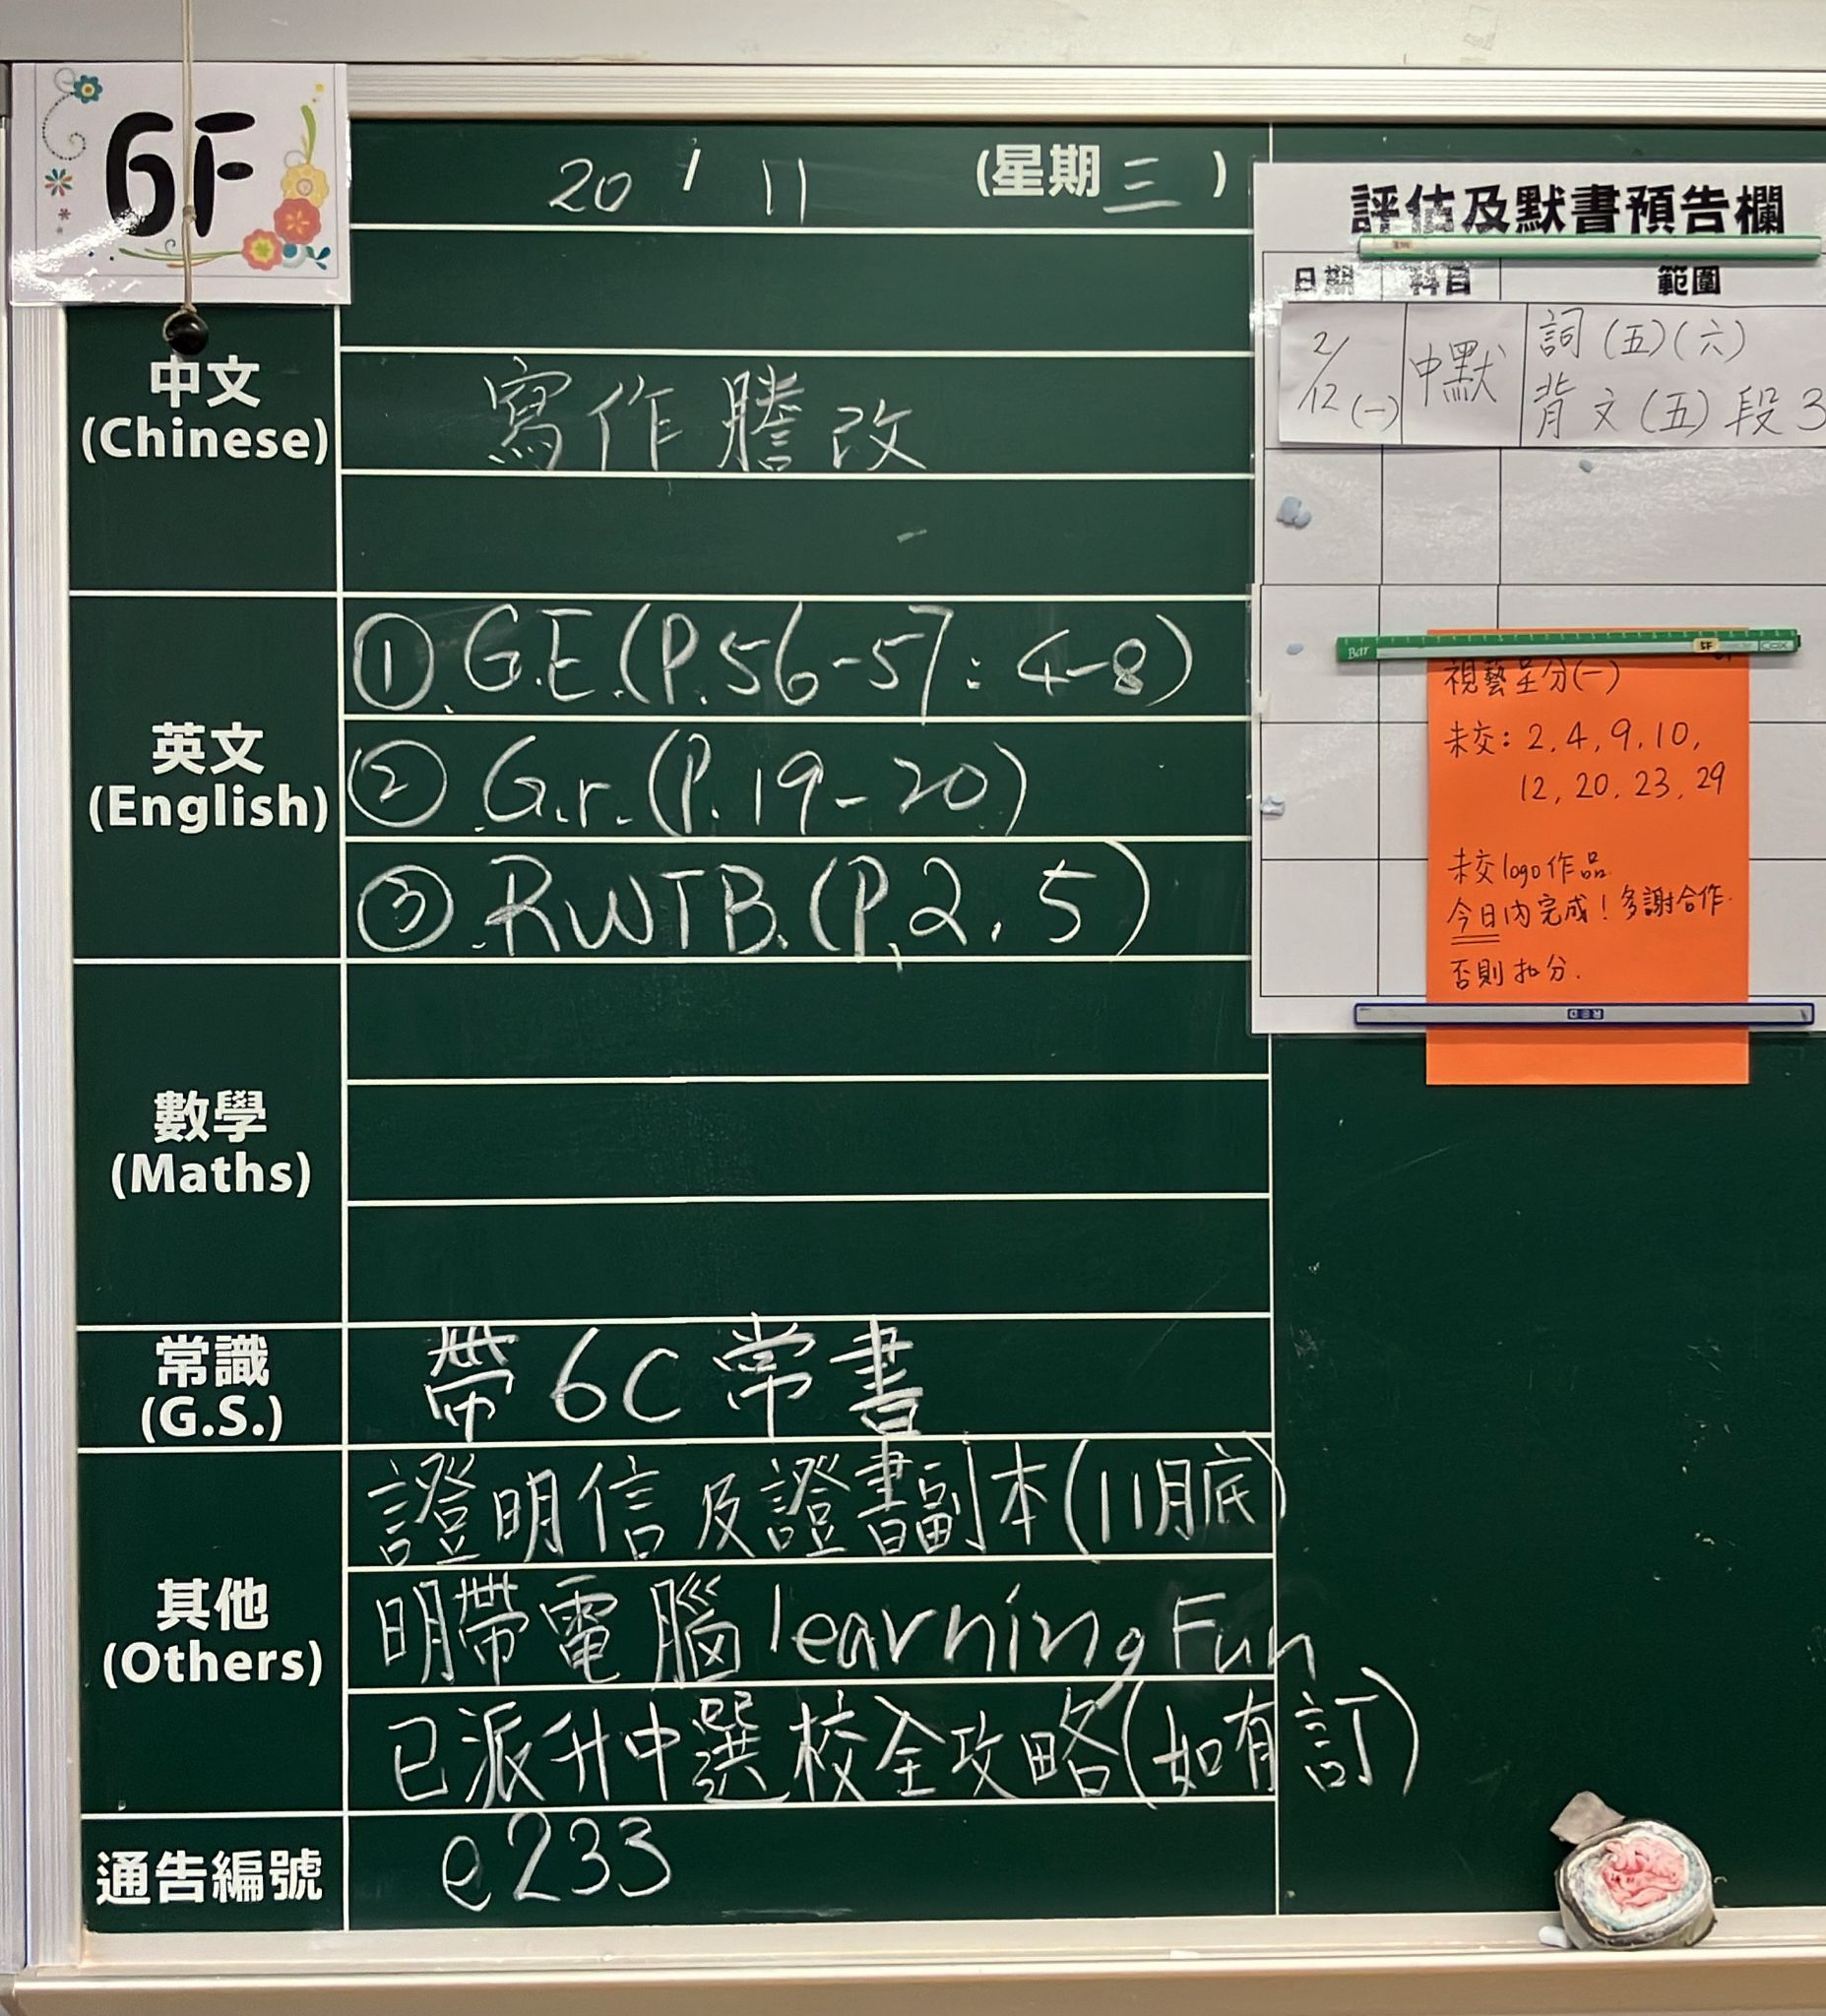 6F
20 / 11 (星期三)
中文
(Chinese)
寫作謄改
英文
(English)
① G.E.(P.56-57: 4-8)
② G.r. (P.19-20)
③ RWTB.(P.2, 5)
數學
(Maths)
常識
(G.S.)
帶6C常書
其他
(Others)
證明信及證書副本(11月底)
明帶電腦learning Fun
已派升中選校全攻略(如有訂)
通告編號
e233
評估及默書預告欄
日期 科目 範圍
2/12(一) 中默 詞(五)(六)
背文(五)段3
視藝呈分(一)
未交: 2, 4, 9, 10,
12, 20, 23, 29
未交logo作品
今日內完成! 多謝合作.
否則扣分.